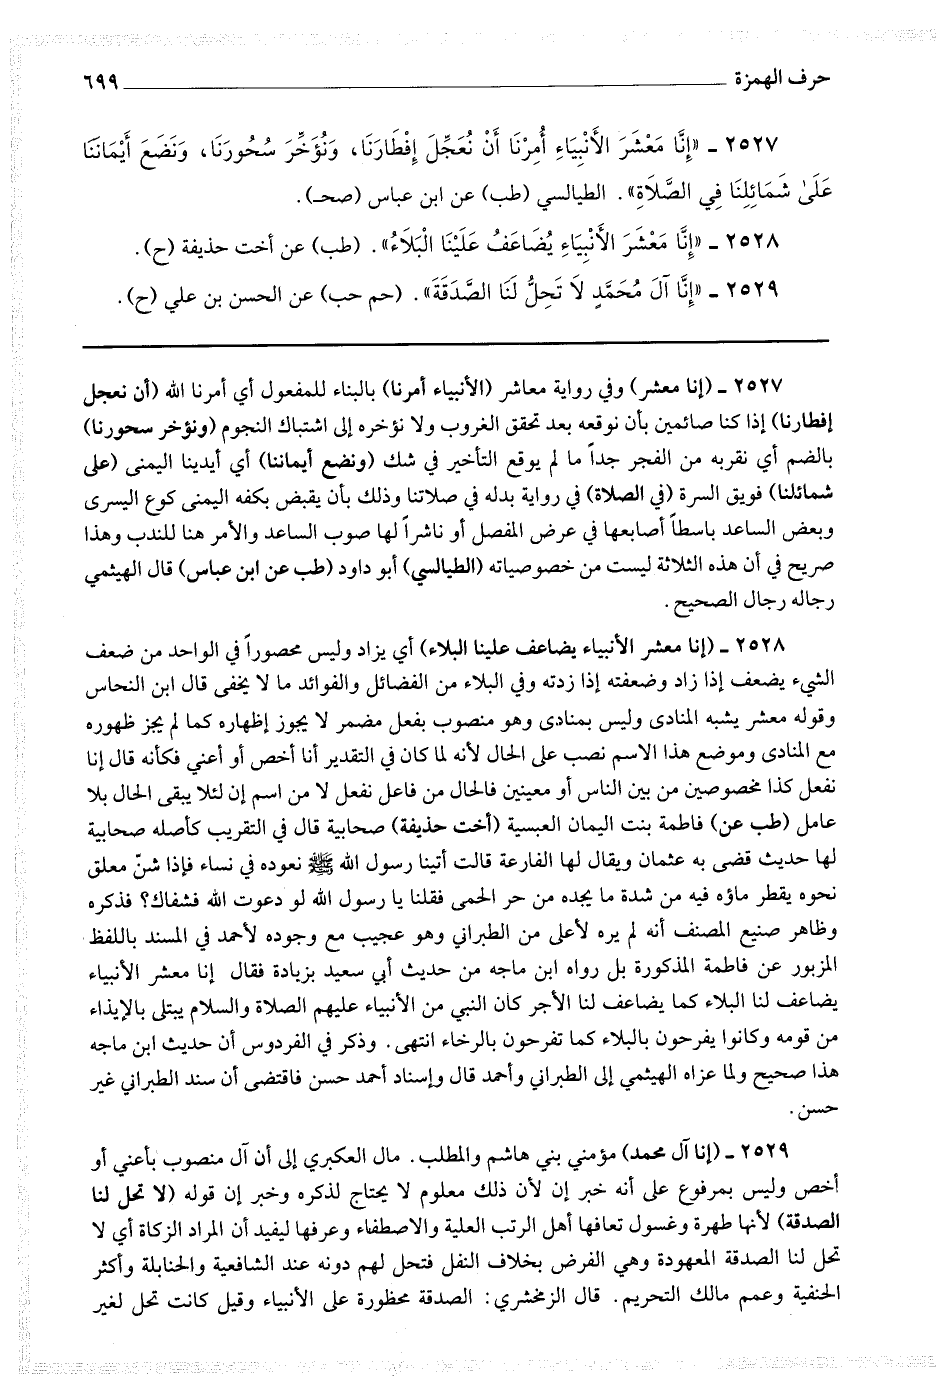 حرف الهمزة ٦٩٩
٢٥٢٧ ـ «إِنَّا مَعْشَرَ الأَنْبِيَاءِ أُمِرْنَا أَنْ نُعَجِّلَ إِفْطَارَنَا، وَنُؤَخِّرَ سُحُورَنَا، وَنَضَعَ أَيْمَانَنَا
عَلَىٰ شَمَائِلِنَا فِي الصَّلَاةِ». الطيالسي (طب) عن ابن عباس (صحـ).
٢٥٢٨ ـ «إِنَّا مَعْشَرَ الأَنْبِيَاءِ يُضَاعَفُ عَلَيْنَا الْبَلَاءُ». (طب) عن أخت حذيفة (ح).
٢٥٢٩ ـ «إِنَّا آلَ مُحَمَّدٍ لَا تَحِلُّ لَنَا الصَّدَقَةَ». (حم حب) عن الحسن بن علي (ح).
٢٥٢٧ ـ (إنا معشر) وفي رواية معاشر (الأنبياء أمرنا) بالبناء للمفعول أي أمرنا الله (أن نعجل
إفطارنا) إذا كنا صائمين بأن نوقعه بعد تحقق الغروب ولا نؤخره إلى اشتباك النجوم (ونؤخر سحورنا)
بالضم أي نقربه من الفجر جداً ما لم يوقع التأخير في شك (ونضع أيماننا) أي أيدينا اليمنى (على
شمائلنا) فويق السرة (في الصلاة) في رواية بدله في صلاتنا وذلك بأن يقبض بكفه اليمنى كوع اليسرى
وبعض الساعد باسطاً أصابعها في عرض المفصل أو ناشراً لها صوب الساعد والأمر هنا للندب وهذا
صريح في أن هذه الثلاثة ليست من خصوصياته (الطيالسي) أبو داود (طب عن ابن عباس) قال الهيثمي
رجاله رجال الصحيح.
٢٥٢٨ ـ (إنا معشر الأنبياء يضاعف علينا البلاء) أي يزاد وليس محصوراً في الواحد من ضعف
الشيء يضعف إذا زاد وضعفته إذا زدته وفي البلاء من الفضائل والفوائد ما لا يخفى قال ابن النحاس
وقوله معشر يشبه المنادى وليس بمنادى وهو منصوب بفعل مضمر لا يجوز إظهاره كما لم يجز ظهوره
مع المنادى وموضع هذا الاسم نصب على الحال لأنه لما كان في التقدير أنا أخص أو أعني فكأنه قال إنا
نفعل كذا مخصوصين من بين الناس أو معينين فالحال من فاعل نفعل لا من اسم إن لئلا يبقى الحال بلا
عامل (طب عن) فاطمة بنت اليمان العبسية (أخت حذيفة) صحابية قال في التقريب كأصله صحابية
لها حديث قضى به عثمان ويقال لها الفارعة قالت أتينا رسول الله ﷺ نعوده في نساء فإذا شنّ معلق
نحوه يقطر ماؤه فيه من شدة ما يجده من حر الحمى فقلنا يا رسول الله لو دعوت الله فشفاك؟ فذكره
وظاهر صنيع المصنف أنه لم يره لأعلى من الطبراني وهو عجيب مع وجوده لأحمد في المسند باللفظ
المزبور عن فاطمة المذكورة بل رواه ابن ماجه من حديث أبي سعيد بزيادة فقال إنا معشر الأنبياء
يضاعف لنا البلاء كما يضاعف لنا الأجر كان النبي من الأنبياء عليهم الصلاة والسلام يبتلى بالإيذاء
من قومه وكانوا يفرحون بالبلاء كما تفرحون بالرخاء انتهى. وذكر في الفردوس أن حديث ابن ماجه
هذا صحيح ولما عزاه الهيثمي إلى الطبراني وأحمد قال وإسناد أحمد حسن فاقتضى أن سند الطبراني غير
حسن.
٢٥٢٩ ـ (إنا آل محمد) مؤمني بني هاشم والمطلب. مال العكبري إلى أن آل منصوب بأعني أو
أخص وليس بمرفوع على أنه خبر إن لأن ذلك معلوم لا يحتاج لذكره وخبر إن قوله (لا تحل لنا
الصدقة) لأنها طهرة وغسول تعافها أهل الرتب العلية والاصطفاء وعرفها ليفيد أن المراد الزكاة أي لا
تحل لنا الصدقة المعهودة وهي الفرض بخلاف النفل فتحل لهم دونه عند الشافعية والحنابلة وأكثر
الحنفية وعمم مالك التحريم. قال الزمخشري: الصدقة محظورة على الأنبياء وقيل كانت تحل لغير